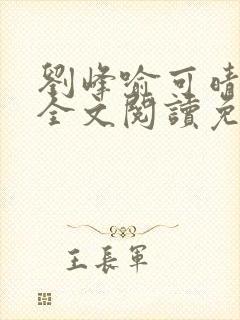 劉峰喻可晴
全文閱讀免
王長軍